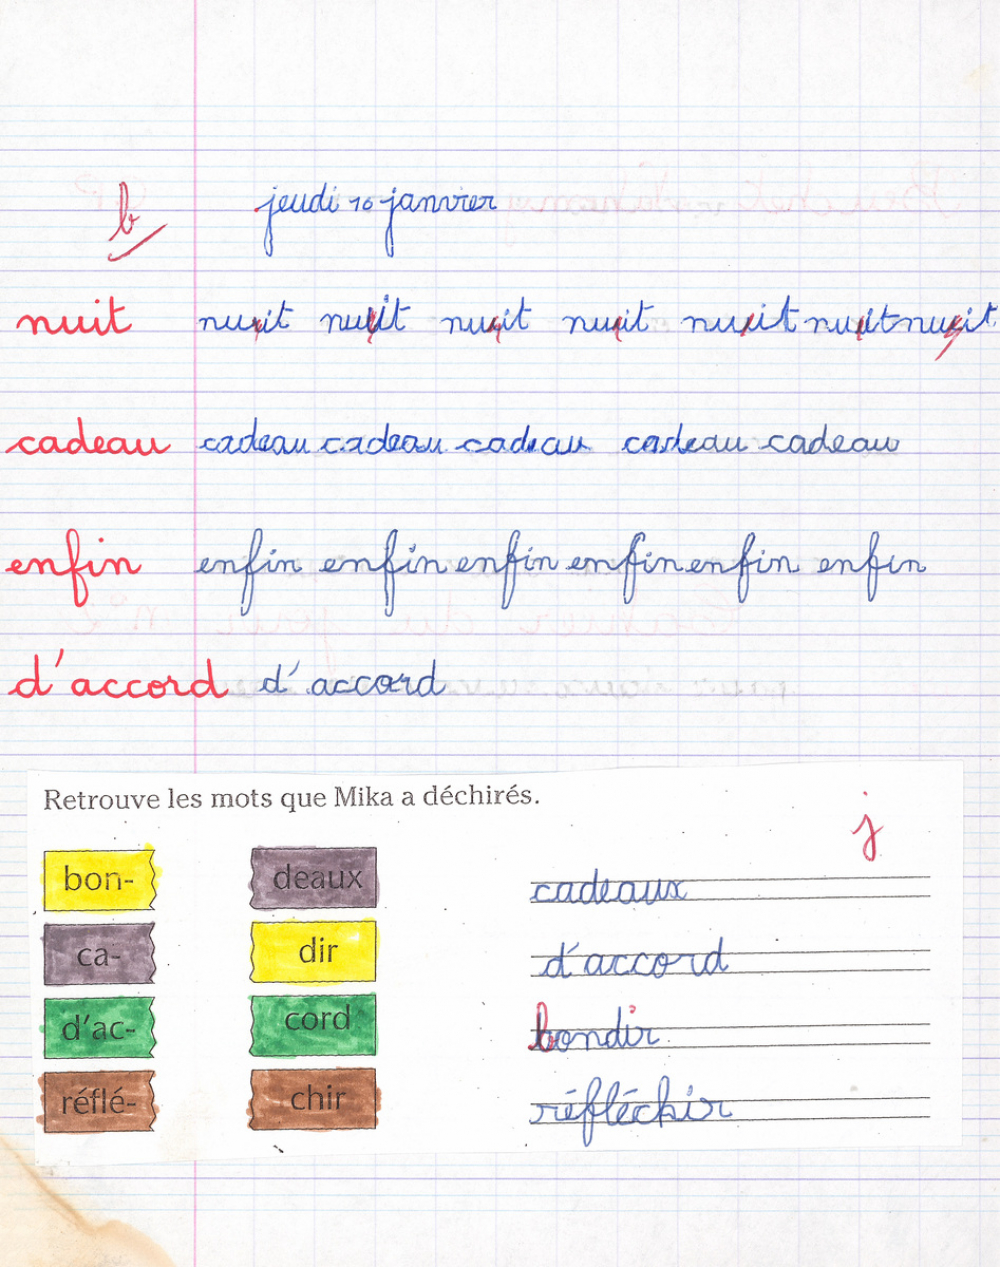 b jeudi 16 janvier
nuit nuit nuit nuit nuit nuit nuit nuit
cadeau cadeau cadeau cadeau cadeau cadeau
enfin enfin enfin enfin enfin enfin enfin
d'accord d'accord
Retrouve les mots que Mika a déchirés.
j
bon- deaux cadeaux
ca- dir d'accord
d'ac- cord bondir
réflé- chir réfléchir